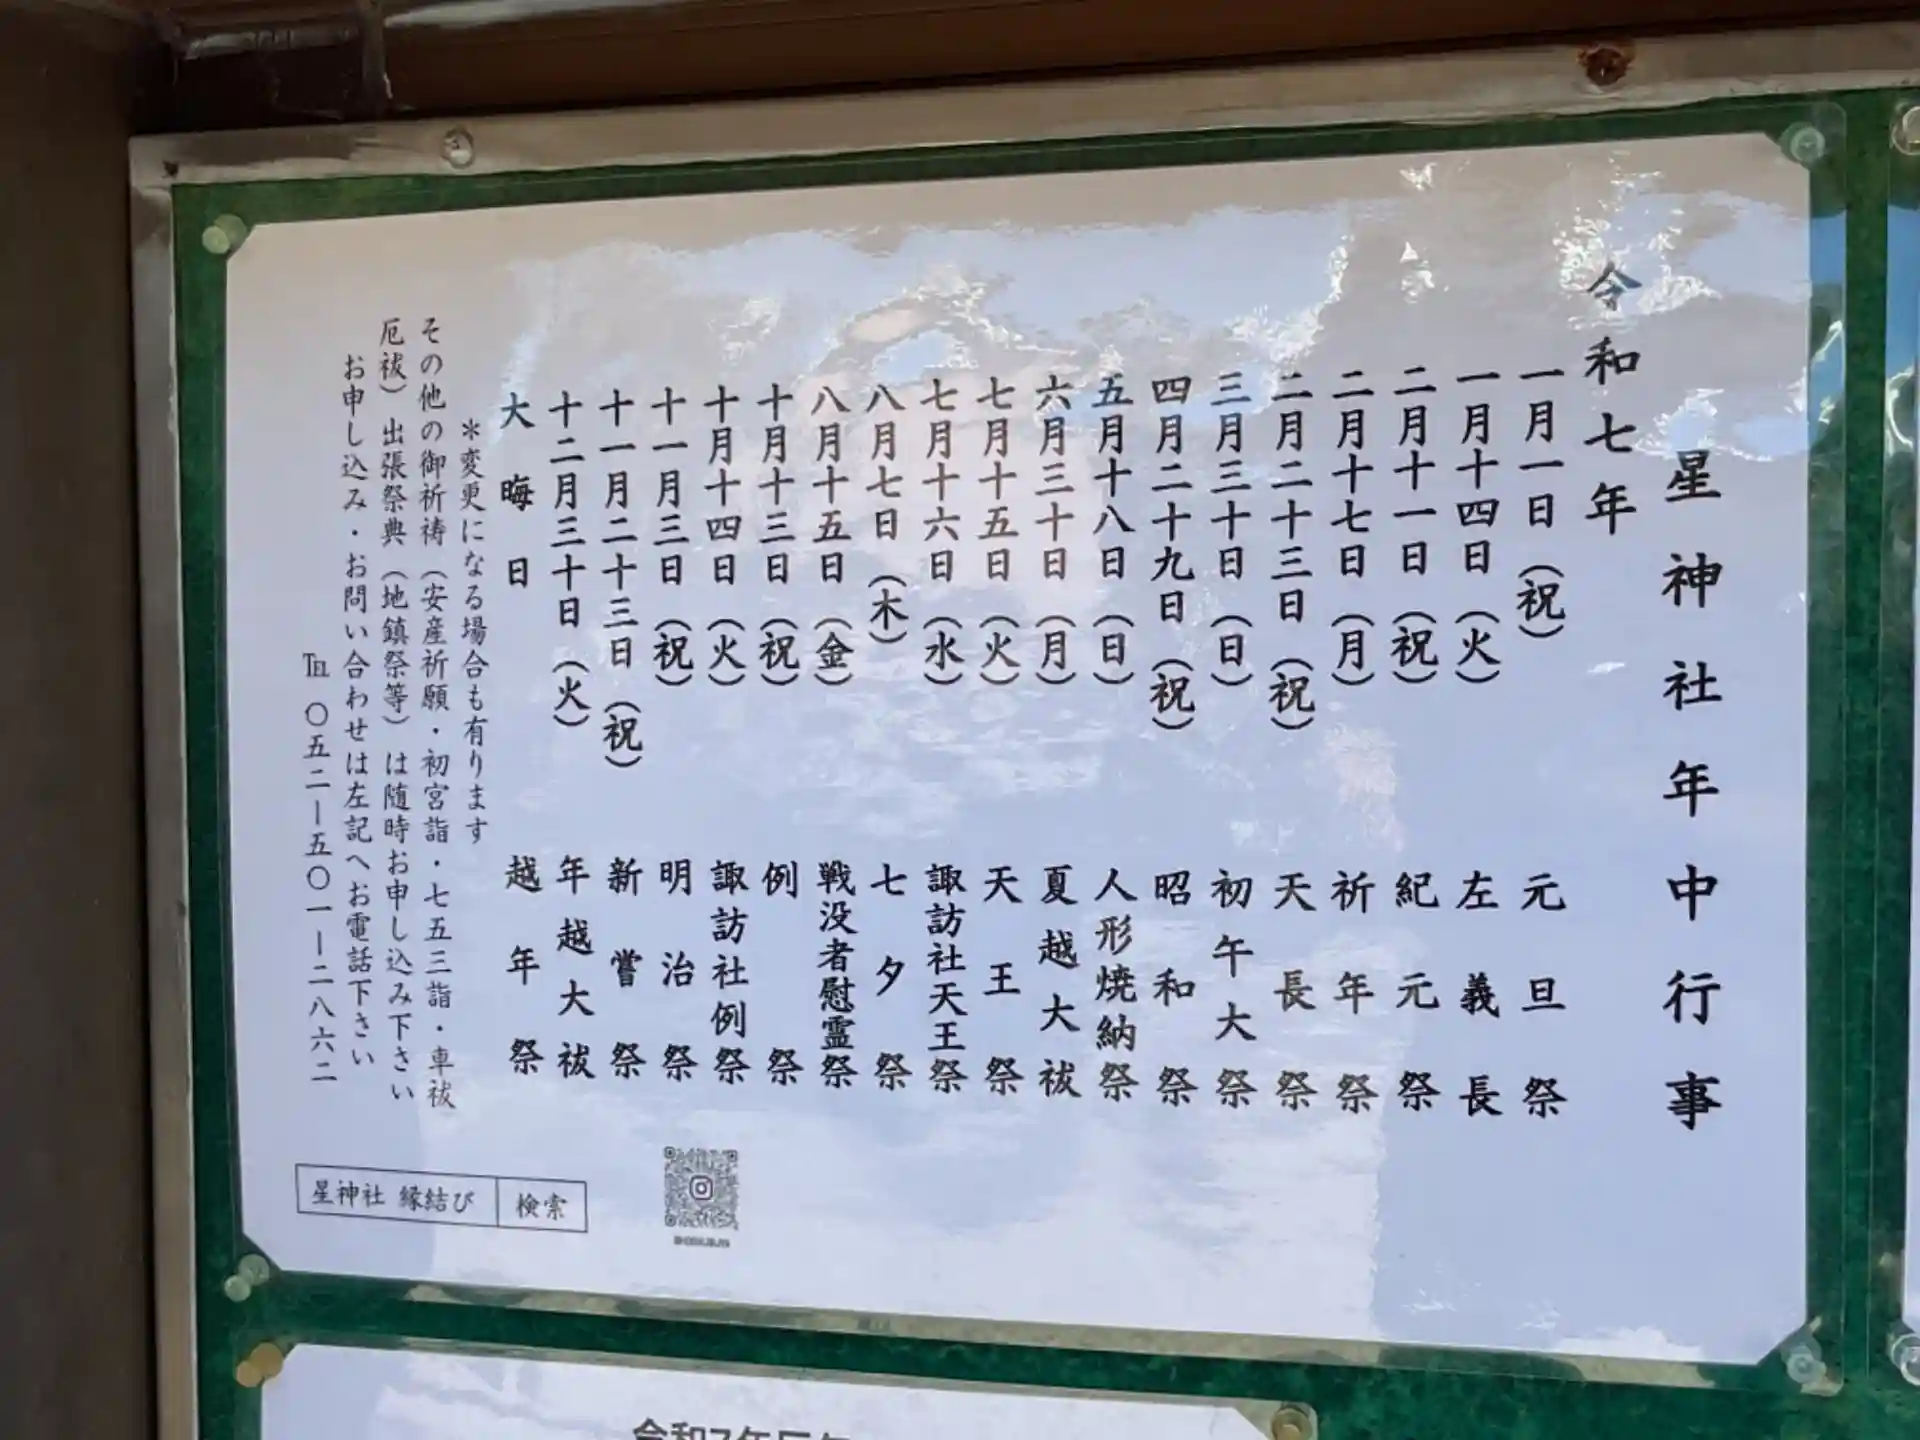 星神社年中行事
令和七年
一月一日（祝） 元旦祭
一月十四日（火） 左義長
二月十一日（祝） 紀元祭
二月十七日（月） 祈年祭
二月二十三日（祝） 天長祭
三月三十日（日） 初午大祭
四月二十九日（祝） 昭和祭
五月十八日（日） 人形焼納祭
六月三十日（月） 夏越大祓
七月十五日（火） 天王祭
七月十六日（水） 諏訪社天王祭
八月七日（木） 七夕祭
八月十五日（金） 戦没者慰霊祭
十月十三日（祝） 例祭
十月十四日（火） 諏訪社例祭
十一月三日（祝） 明治祭
十一月二十三日（祝） 新嘗祭
十二月三十日（火） 年越大祓
大晦日 越年祭
＊変更になる場合も有ります
その他の御祈祷（安産祈願・初宮詣・七五三詣・車祓
厄祓）出張祭典（地鎮祭等）は随時お申し込み下さい
お申し込み・お問い合わせは左記へお電話下さい
℡ 〇五二ー五〇一ー二八六二
星神社 縁結び 検索
令和7年